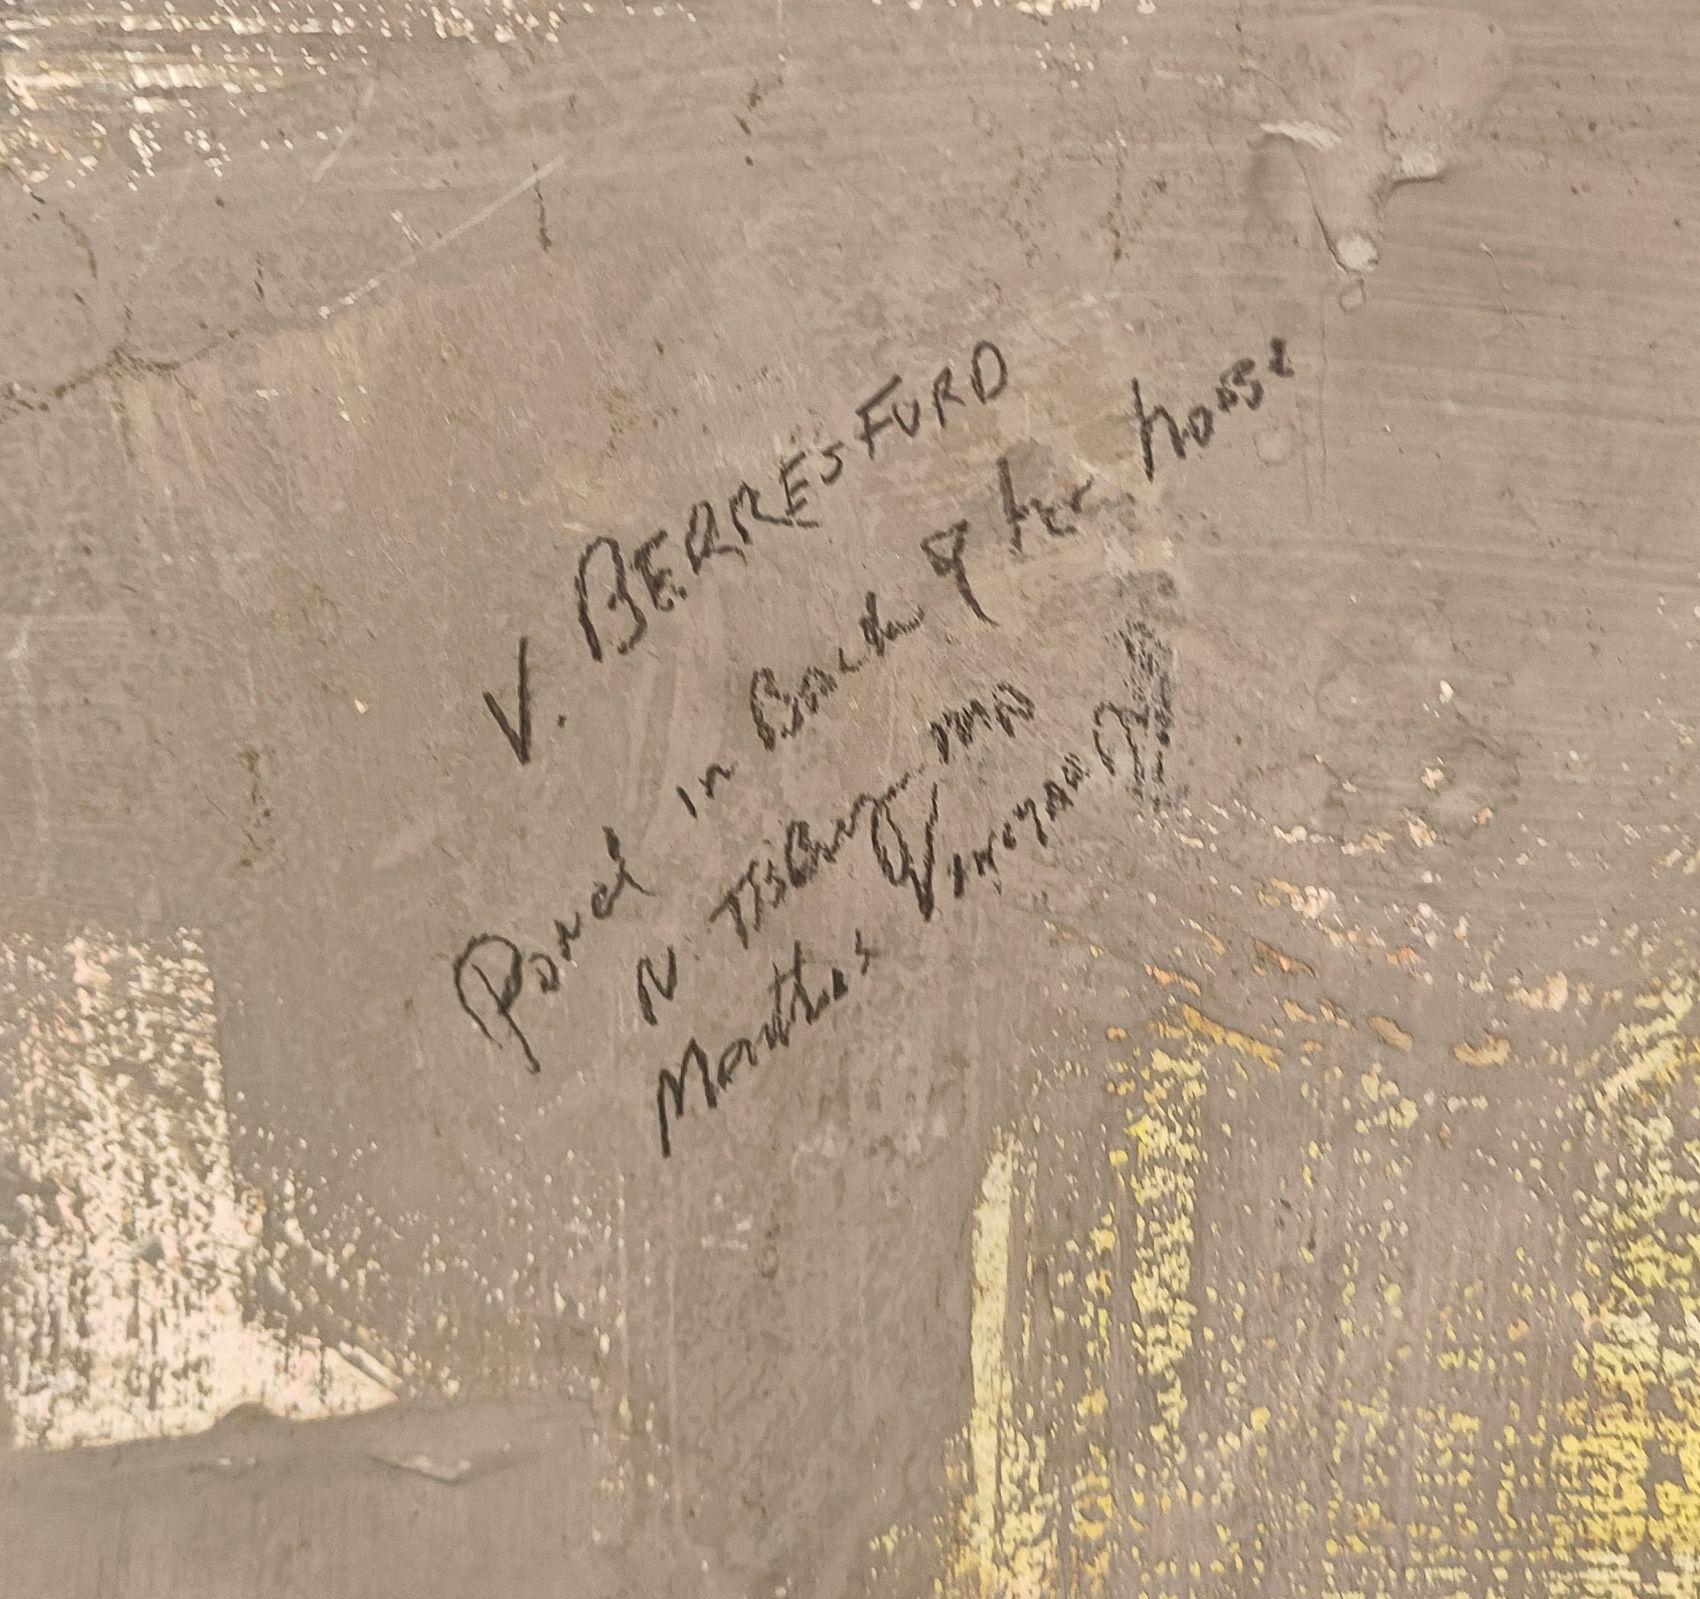 V. BERRESFORD
Pond in Back of her house
N. TISBury MA
Marthas VINEYARD